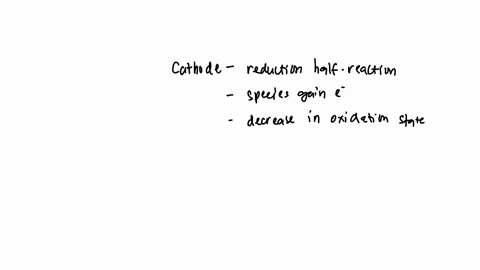 Cathode - reduction half-reaction
- species gain e⁻
- decrease in oxidation state